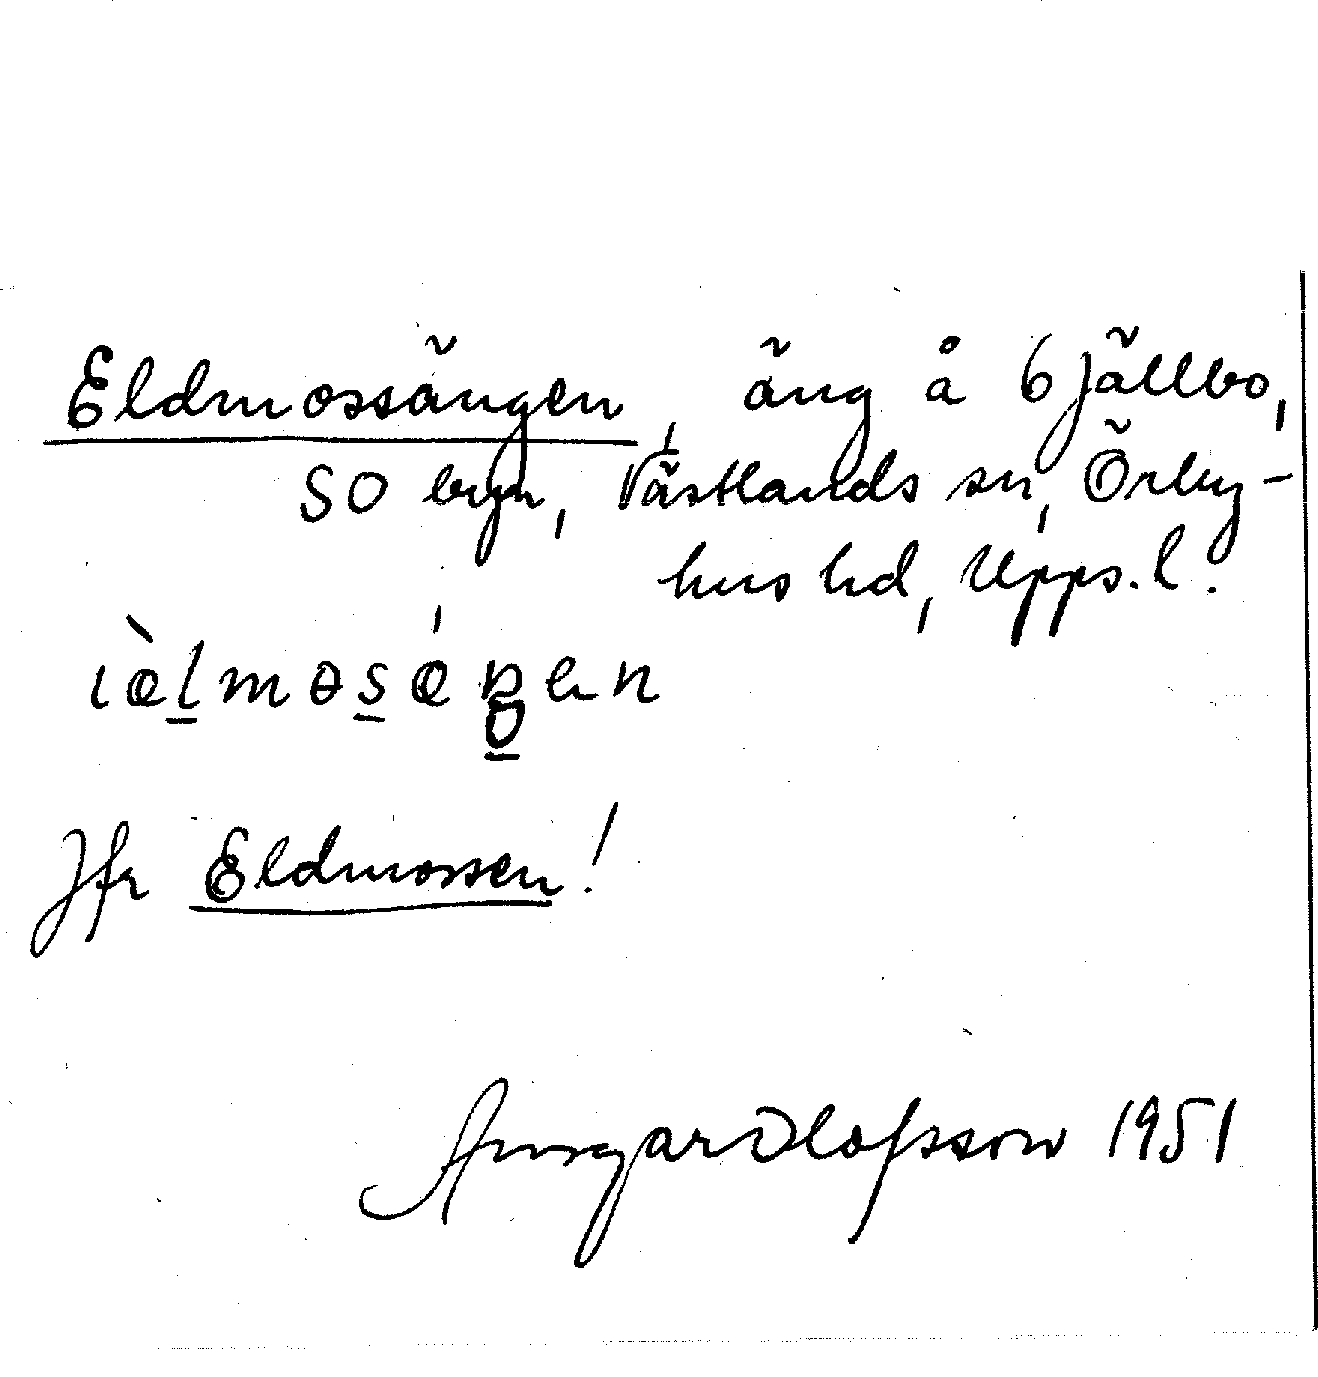 Eldmossängen, äng å 6 Jällbo,
SO byn, Västlands sn, Örby-
hus hd, Upps. l.
Jfr Eldmossen!
Ansgar Olofsson 1951